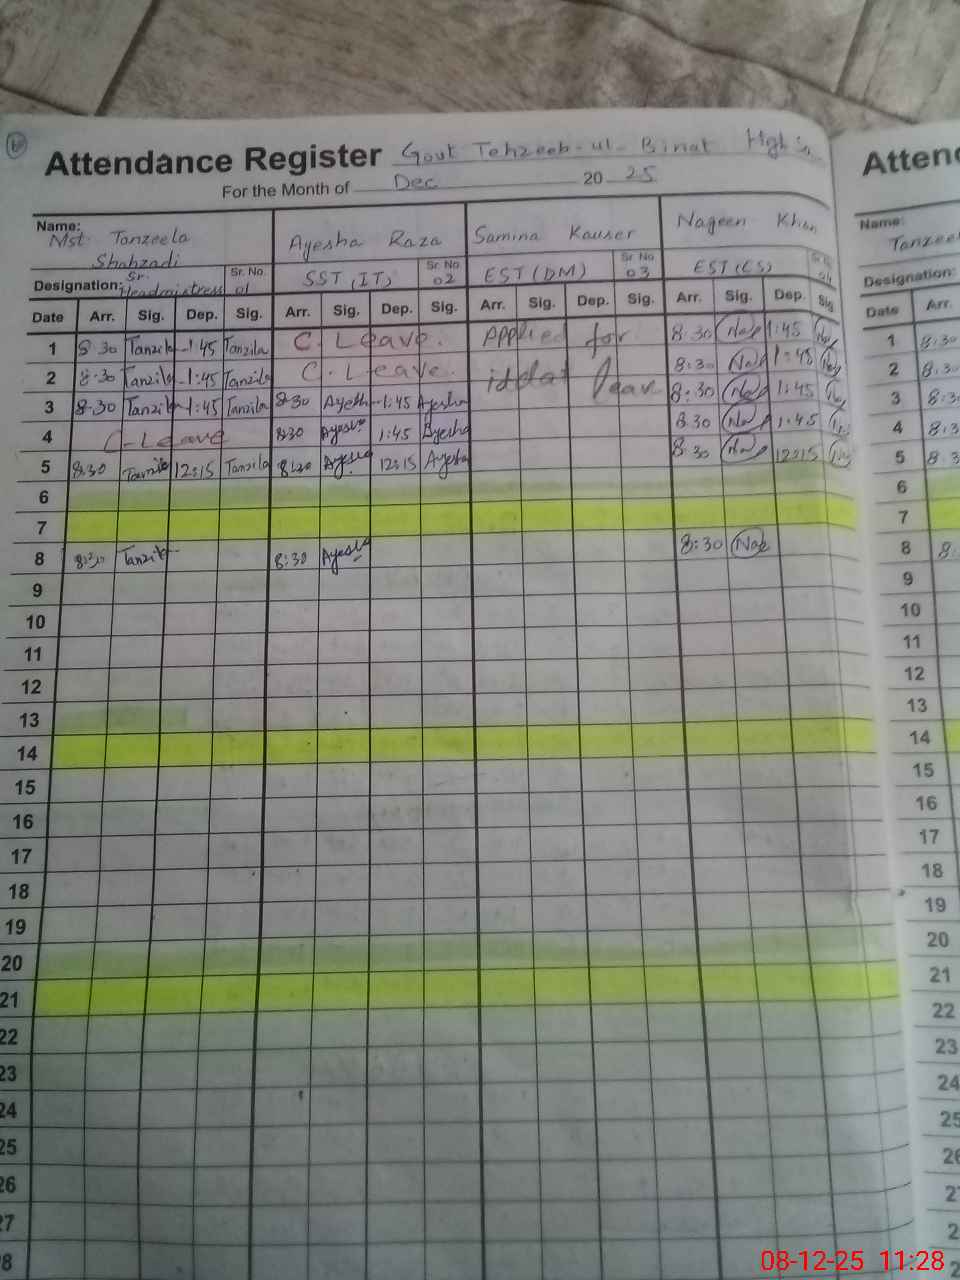 Attendance Register Govt Tehzeeb-ul-Binat High
For the Month of Dec 20 25
Name: Mst. Tanzeela Shahzadi Ayesha Raza Samina Kauser Nageen Khan
Designation: Sr. Headmistress Sr. No. 01 SST (IT) Sr. No. 02 EST (DM) Sr. No. 03 EST (CS) 04
Date Arr. Sig. Dep. Sig. Arr. Sig. Dep. Sig. Arr. Sig. Dep. Sig. Arr. Sig. Dep. Sig.
1 8:30 Tanzila 1:45 Tanzila C. Leave. Applied for 8:30 1:45
2 8:30 Tanzila 1:45 Tanzila C. Leave. iddat leav 8:30 1:45
3 8:30 Tanzila 1:45 Tanzila 8:30 Ayesha 1:45 Ayesha 8:30 1:45
4 C-Leave 8:30 Ayesha 1:45 Ayesha 8:30 1:45
5 8:30 Tanzila 12:15 Tanzila 8:30 Ayesha 12:15 Ayesha 8:30 12:15
6
7
8 8:30 Tanzila 8:30 Ayesha 8:30
9
10
11
12
13
14
15
16
17
18
19
20
21
22
23
24
25
26
27
8
Atten
Name:
Tanzee
Designation:
Date Arr.
1 8:30
2 8:30
3 8:3
4 8:3
5 8:3
6
7
8 8:
9
10
11
12
13
14
15
16
17
18
19
20
21
22
23
24
25
26
2
2
08-12-25 11:28